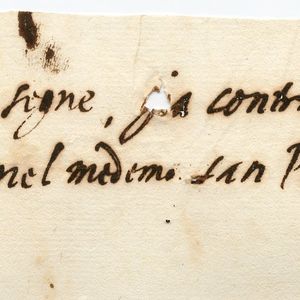 segne, ja contr
nel medemo san P